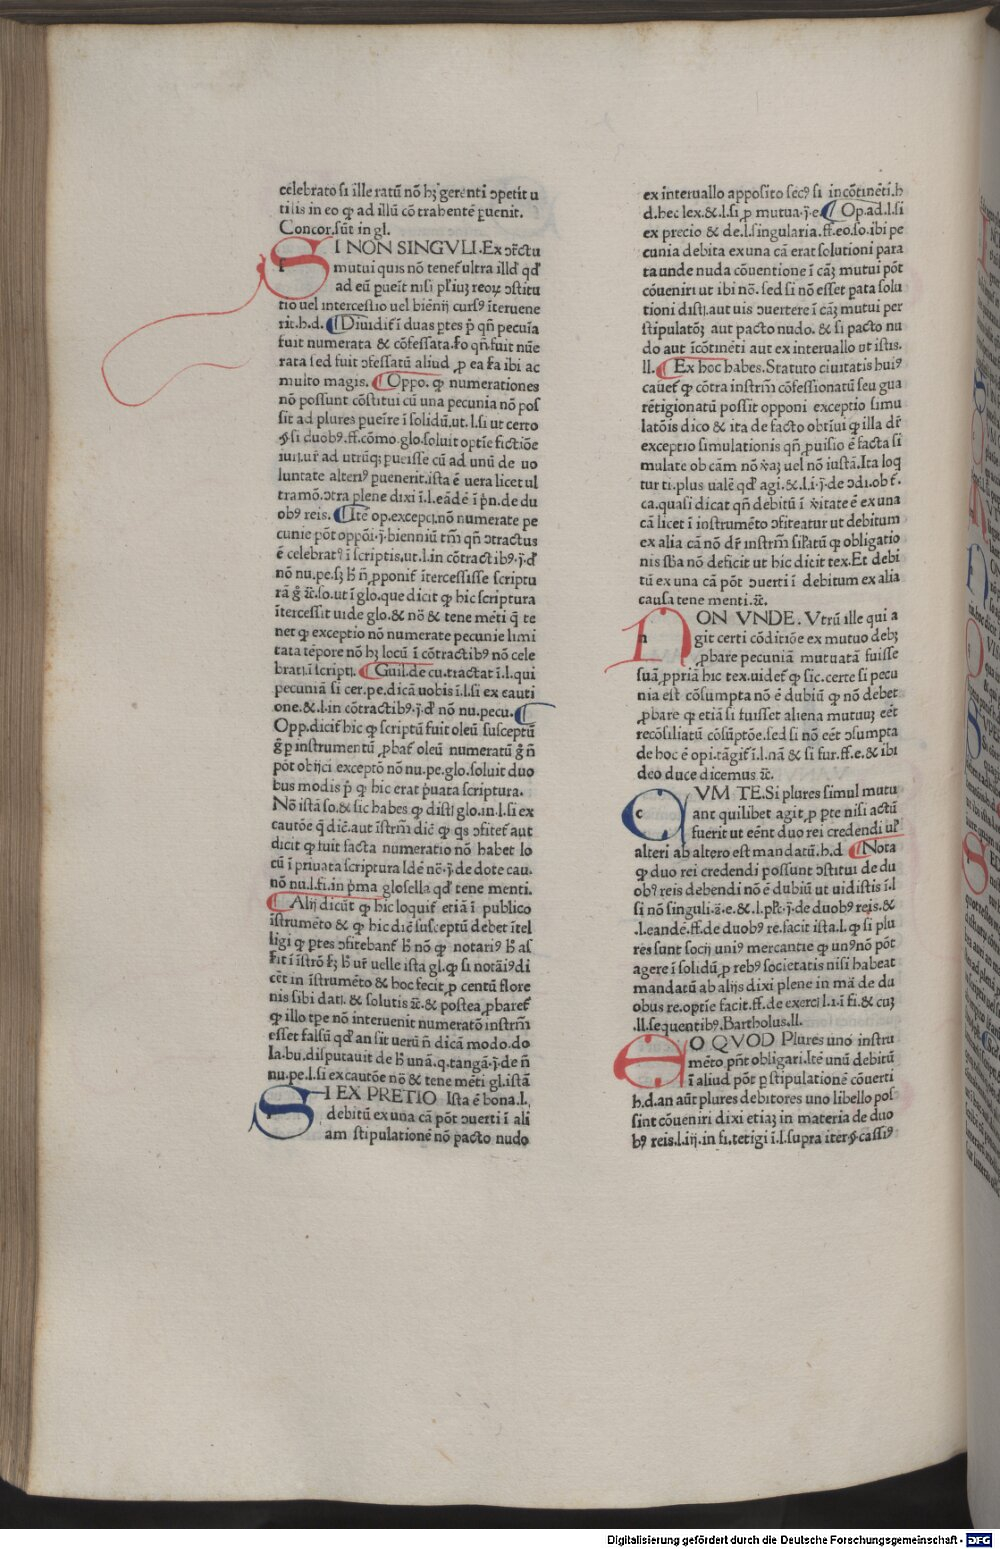 celebrato si ille ratū nō hꝫ gerenti ↄpetit u
tilis in eo ꝙ ad illū cōtrahentē ꝑuenit.
Concor.sūt in gl.
SI NON SINGVLI.Ex ↄtr̄ctu
mutui quis nō tenet̄ ultra illd̄ qd̄
ad eū ꝑueīt nisi pl̄iuꝫ reoꝝ ↄstitu
tio uel intercessio uel biēnij cursꝰ īteruene
rit.h.d. ¶Diuidit̄ ī duas ꝑtes p̄ qn̄ pecuīa
fuit numerata & cōfessata.ſo qn̄ fuit nūe
rata sed fuit ↄfessatū aliud ꝓ ea ſ̄a ibi ac
multo magis. ¶Oppo. ꝙ numerationes
nō possunt cōstitui cū una pecunia nō pos
sit ad plures ꝑueīre ī solidū.ut.l.si ut certo
§ si duobꝰ.ff.cōmo.glo.soluit optīe fictiōe
iuri.ut̄ ad utrūqꝫ ꝑueisse cū ad unū de uo
luntate alteriꝰ ꝑuenerit.ista ē uera licet ul
tramō.ↄtra plene dixi ī.l.eādē ī pn̄.de du
obꝰ reis. ¶Itē op.excepti.nō numerate pe
cunie pōt oppōi.j.bienniū tm̄ qn̄ ↄtractus
ē celebratꝰ ī scriptis.ut.l.in cōtractibꝰ.j.d̄
nō nu.pe.sꝫ h̄ n̄ ꝓponit̄ ītercessisse scriptu
rā g̊ ⁊c̄.so.ut ī glo.que dicit ꝙ hic scriptura
ītercessit uide glo.& nō & tene mēti q̄ te
net ꝙ exceptio nō numerate pecunie limi
tata tēpore nō hꝫ locū ī cōtractibꝰ nō cele
brati.ī scripti. ¶Guil.de cu.tractat ī.l.qui
pecuniā si cer.pe.dicā uobis ī.l.si ex cauti
one.& .l.in cōtractibꝰ.j.d̄ nō nu.pecu. ¶
Opp.dicit̄ hic ꝙ scriptū fuit oleū susceptū
g̊ ꝑ instrumentū ꝓbat̄ oleū numeratū g̊ n̄
pōt obijci exceptō nō nu.pe.glo.soluit duo
bus modis p̄ ꝙ hic erat ꝑuata scriptura.
Nō istā so.& sic habes ꝙ disti glo.in.l.si ex
cautōe q̄ diē.aut īstrm̄ diē ꝙ qs ↄfitet̄ aut
dicit ꝙ fuit facta numeratio nō habet lo
cū ī priuata scriptura Idē nō.j.de dote cau.
nō nu.l.fi.in p̄ma glosella qd̄ tene menti.
¶Alij dicūt ꝙ hic loquit̄ etiā ī publico
īstrumēto & ꝙ hic diē susceptū debet ītel
ligi ꝙ ꝑtes ↄfitebant̄ h̄ nō ꝙ notariꝰ h̄ as
ſit ī īstrō sꝫ h̄ ut̄ uelle ista gl.ꝙ si notāiꝰ di
cēt in īstrumēto & hoc fecit ꝑ centū flore
nis sibi dati. & solutis ⁊c̄.& postea ꝓbaret̄
ꝙ illo tꝑe nō interuenit numeratō instrm̄
esset falsū qd̄ an sit uerū n̄ dicā modo.do
la.bu.disputauit de h̄ unā.q.tangā.j.de n̄
nu.pe.l.si ex cautōe nō & tene mēti gl.istā
SI EX PRETIO Ista ē bona.l.
debitū ex una cā pōt ↄuerti ī ali
am stipulationē nō pacto nudo
ex interuallo apposito secꝰ si incōtinēti.h
d.hec lex.& .l.si ꝓ mutua.j.e. ¶Op.ad.l.si
ex precio & de.l.singularia.ff.eo.so.ibi pe
cunia debita ex una cā erat solutioni para
ta unde nuda cōuentione ī cāꝫ mutui pōt
cōueniri ut ibi nō. sed si nō esset ꝑata solu
tioni disti.aut uis ↄuertere ī cāꝫ mutui per
stipulatōꝫ aut pacto nudo. & si pacto nu
do aut īcōtinēti aut ex interuallo ut istis.
ll. ¶Ex hoc habes.Statuto ciuitatis huiꝰ
cauet̄ ꝙ cōtra instrm̄ cōfessionatū seu gua
rētigionatū possit opponi exceptio simu
latōis dico & ita de facto obtīui ꝙ illa dr̄
exceptio simulationis qn̄ ꝓuisio ē facta si
mulate ob cām nō ꝟaꝫ uel nō iustā.Ita loq
tur ti.plus ualē qd̄ agi.& .l.i.j.de ↄdi.ob t̄.
ca.quasi dicat qn̄ debitū ī ꝟitate ē ex una
cā licet ī instrumēto ↄfiteatur ut debitum
ex alia cā nō dr̄ instrm̄ sil̄atū ꝙ obligatio
nis sb̄a nō deficit ut hic dicit tex.Et debi
tū ex una cā pōt ↄuerti ī debitum ex alia
causa tene menti.⁊c̄.
NON VNDE. Vtrū ille qui a
git certi cōditiōe ex mutuo debꝫ
ꝓbare pecuniā mutuatā fuisse
suā ꝓpriā hic tex.uidet̄ ꝙ sic.certe si pecu
nia est cōsumpta nō ē dubiū ꝙ nō debet
ꝓbare ꝙ etiā si fuisset aliena mutuuꝫ eēt
recōsiliatū cōsūptōe.sed si nō eēt ↄsumpta
de hoc ē opi.tāgit̄ ī.l.nā & si fur.ff.e.& ibi
deo duce dicemus ⁊c̄.
CVM TE.Si plures simul mutu
ant quilibet agit ꝓ ꝑte nisi actū
fuerit ut eēnt duo rei credendi ul̓
alteri ab altero est mandatū.h.d ¶Nota
ꝙ duo rei credendi possunt ↄstitui de du
obꝰ reis debendi nō ē dubiū ut uidistis ī.l
si nō singuli.ā.e.& .l.pl̄r.j.de duobꝰ reis.&
.l.eandē.ff.de duobꝰ re.facit ista.l.ꝙ si plu
res sunt socij uniꝰ mercantie ꝙ unꝰ nō pōt
agere ī solidū ꝓ rebꝰ societatis nisi habeat
mandatū ab alijs dixi plene in mā de du
obus re.optīe facit.ff.de exerci.l.i.ī fi.& cuꝫ
.ll.sequentibꝰ.Bartholus.ll.
EO QVOD Plures uno instru
mēto pn̄t obligari.Itē unū debitū
ī aliud pōt ꝑ stipulationē cōuerti
h.d.an aūt plures debitores uno libello pos
sint cōueniri dixi etiaꝫ in materia de duo
bꝰ reis.l.iij.in fi.tetigi ī.l.supra iter § cassiꝰ
Digitalisierung gefördert durch die Deutsche Forschungsgemeinschaft - DFG